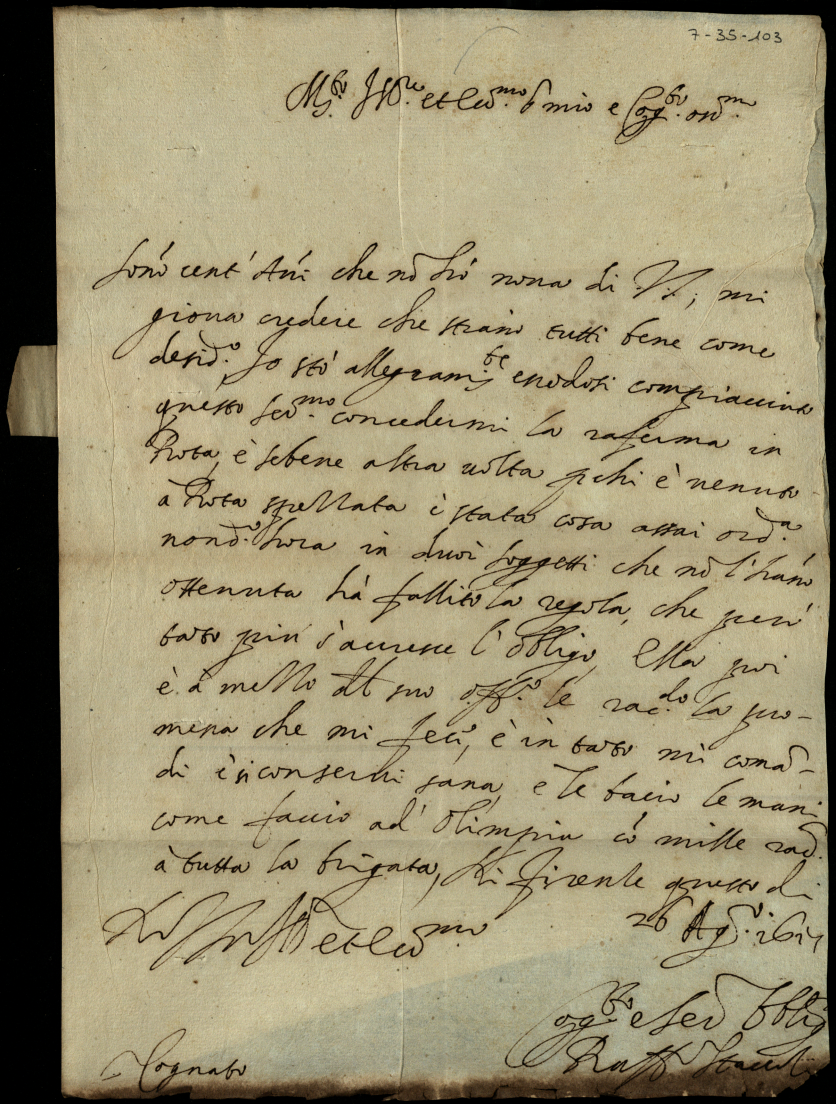 7-35-103
Mto. Illre. et Ecc.mo Sr mio e Cogto. oss.mo
Sono cent' Anni che nõ hò nova di V.S., mi
giova credere che stiano tutti bene come
desid.o, Io stò allegram.te essẽdosi compiacciuto
questo Ser.mo concedermi la raferma in
Rota, è sebene altra volta pchi è venuto
à Rota spellata è stata cosa assai ord.a
nond.o hora in duoi soggetti che nõ l'hano
ottenuta hà fallito la regola, che però
tãto piu s'accresce l'obligo, Ella poi
è à mello del suo off.o le racdo. la pro-
messa che mi fece, è in tãto mi comã-
di è si conservi sana, e le bacio le mani
come faccio ad' Olimpia cõ mille racd.
à tutta la brigata, Di Firenze questo di
26 Ag.o 161
Di V.S. Mto Illre et Ecc.mo
Cog.to e Ser. Obblig
Raff. Stacoli
Cognato